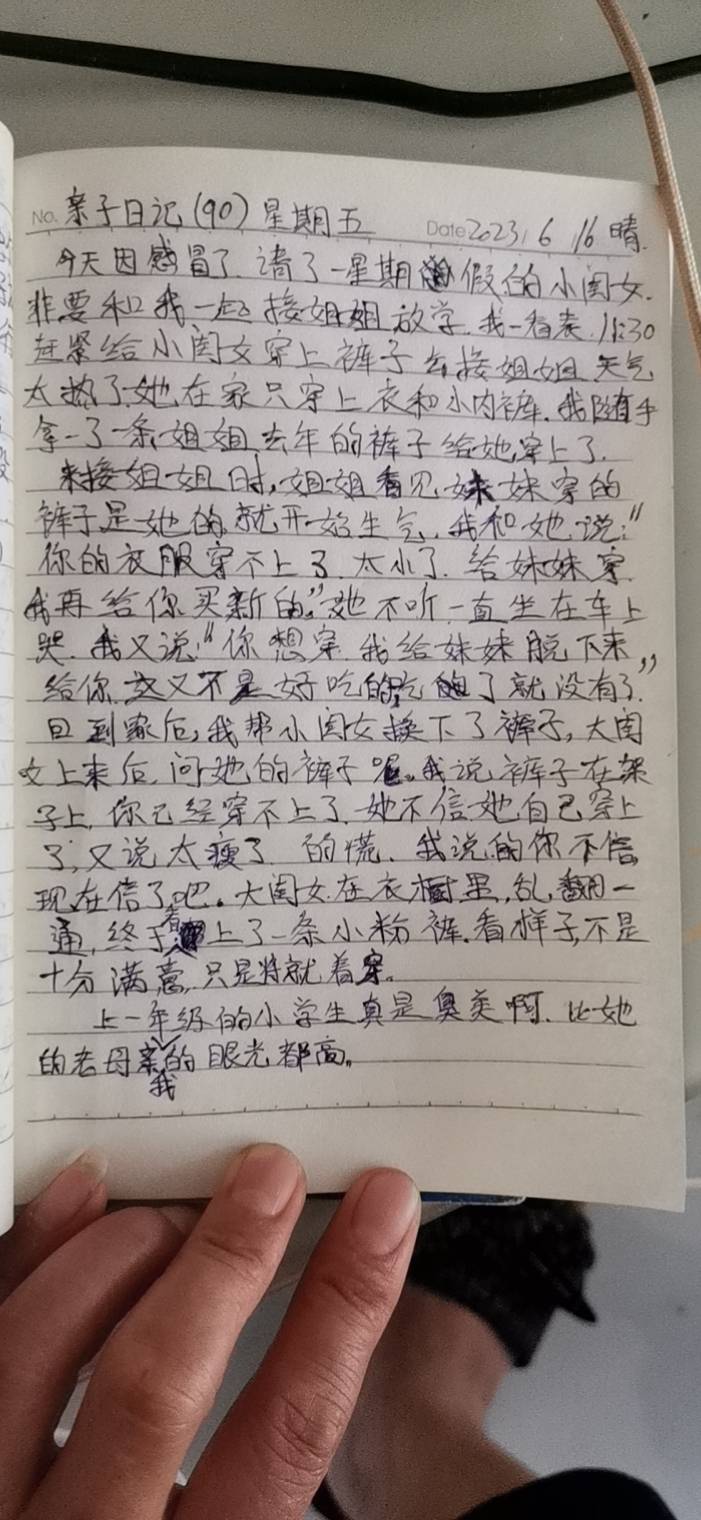 No. 亲子日记(90) 星期五 Date 2023, 6, 16 晴.
今天因感冒了. 请了一星期假的小闺女.
非要和我一起接姐姐放学. 我一看表. 11:30
赶紧给小闺女穿上裤子去接姐姐. 天气
太热了. 她在家只穿上衣和小内裤. 我随手
拿了一条姐姐去年的裤子给她穿上了.
来接姐姐时, 姐姐看见妹妹穿的
裤子是她的, 就开始生气. 我和她说:“
你的衣服穿不上了. 太小了. 给妹妹穿.
我再给你买新的.”她不听一直坐在车上
哭. 我又说:“你想穿. 我给妹妹脱下来,
给你. 这又不是好吃的, 吃了就没有了.”
回到家后, 我帮小闺女换下了裤子, 大闺
女上来后, 问她的裤子呢。我说裤子在架
子上, 你已经穿不上了. 她不信她自己穿上
了, 又说太瘦了. 的慌. 我说的你不信,
现在信了吧。大闺女在衣橱里, 乱翻一
通, 终于看上了一条小粉裤. 看样子, 不是
十分满意, 只是将就着穿。
上一年级的小学生真是臭美啊. 比她
的老母亲我的眼光都高。